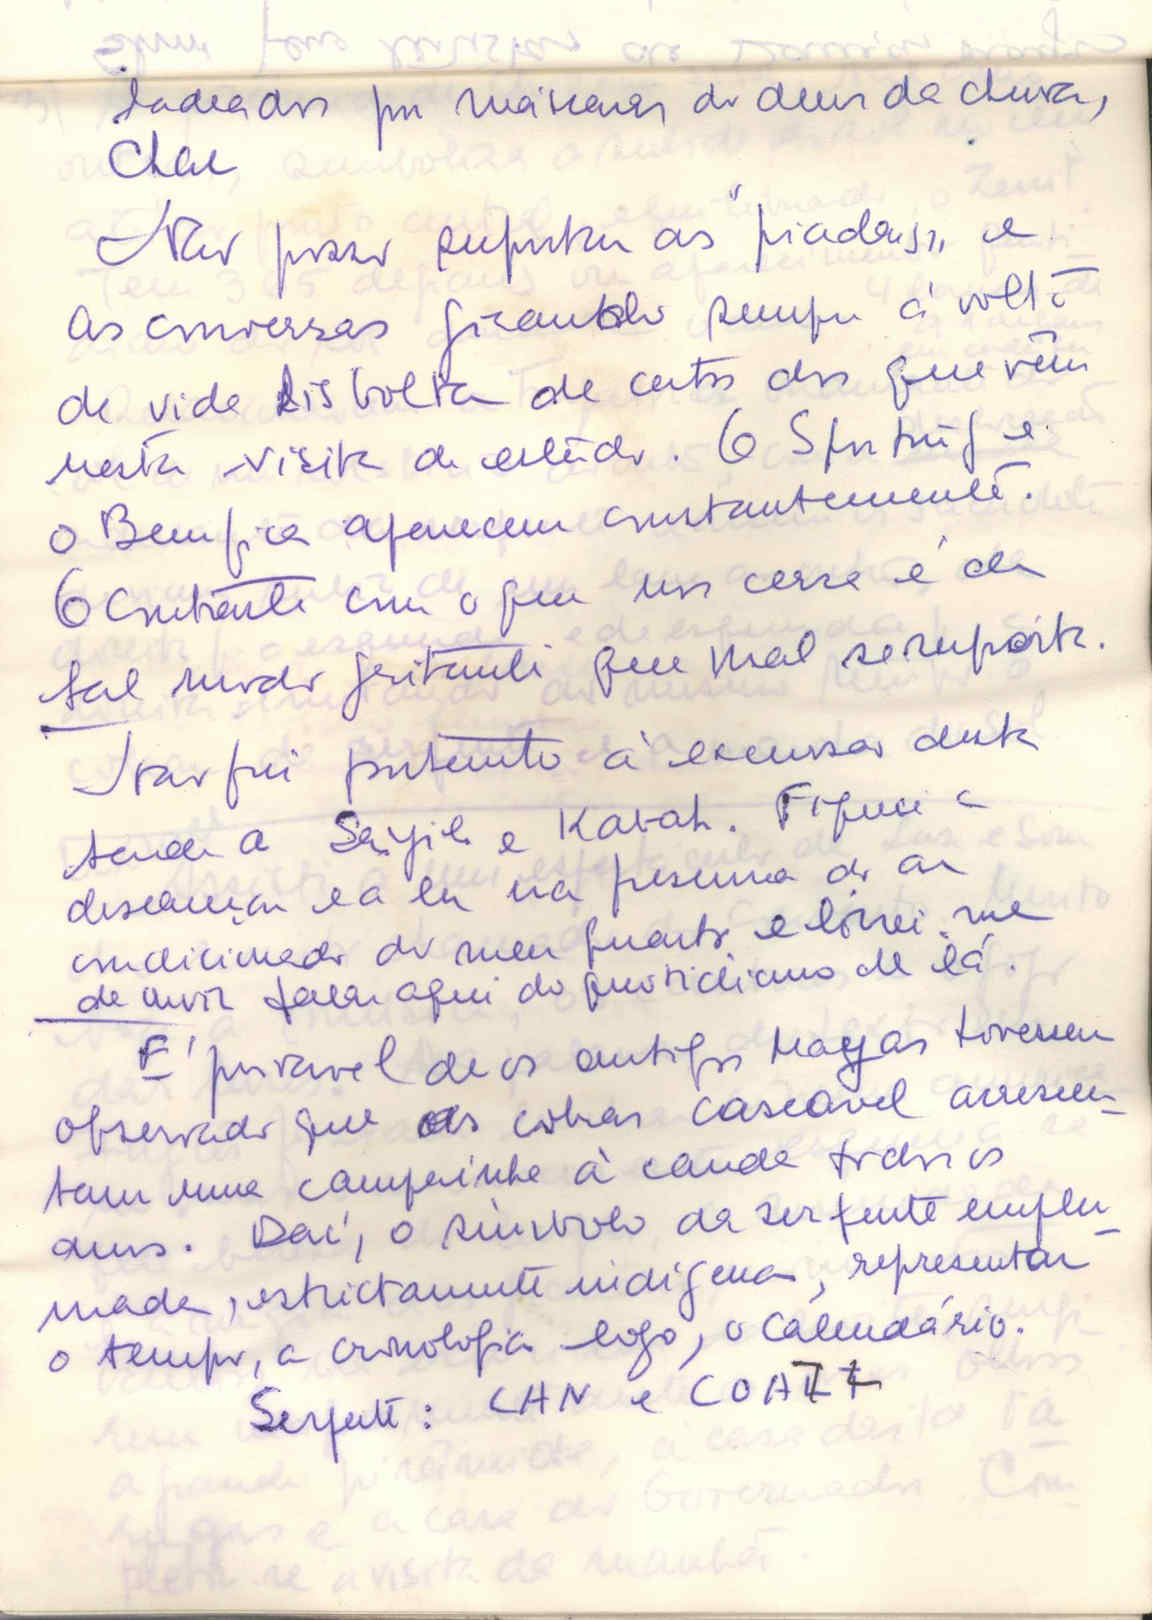 ladeados por máscaras do deus da chuva,
Chac
Não posso suportar as "piadas", e
as conversas girando sempre à volta
da vida lisboeta de certos dos que vêm
nesta visita de estudo. O Sporting e
o Benfica aparecem constantemente.
O contraste com o que nos cerca é de
tal modo gritante que mal se suporta.
Não fui portanto à excursão desta
tarde a Sayil e Kabah. Fiquei a
descansar e a ler na presença do ar
condicionado do meu quarto e livrei-me
de ouvir falar aqui do quotidiano de lá.
É provável de os antigos Mayas tivessem
observado que as cobras cascavel acrescen-
tam uma campainha à cauda todos os
anos. Daí, o símbolo da serpente emplu-
mada, estrictamente indígena, representar
o tempo, a cronologia logo, o calendário.
Serpente: CAN e COATL